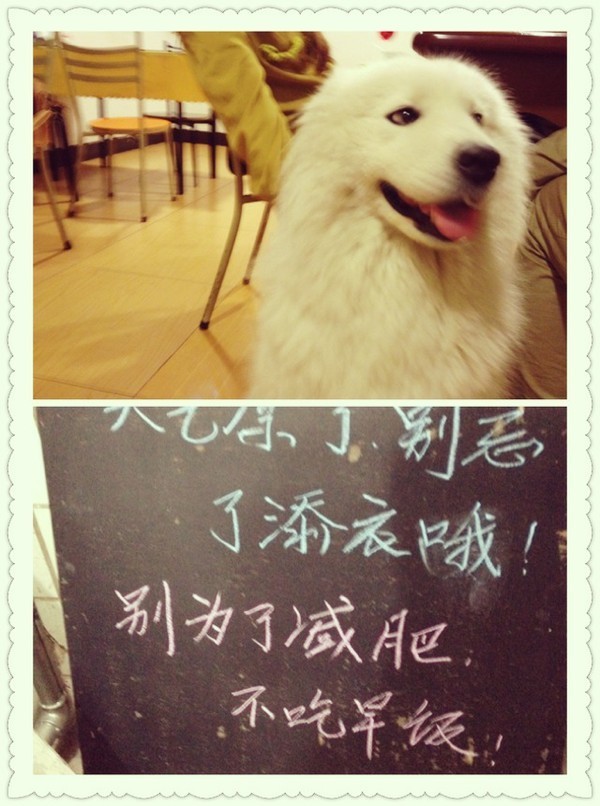 天气凉了.别忘
了添衣哦!
别为了减肥.
不吃早饭!